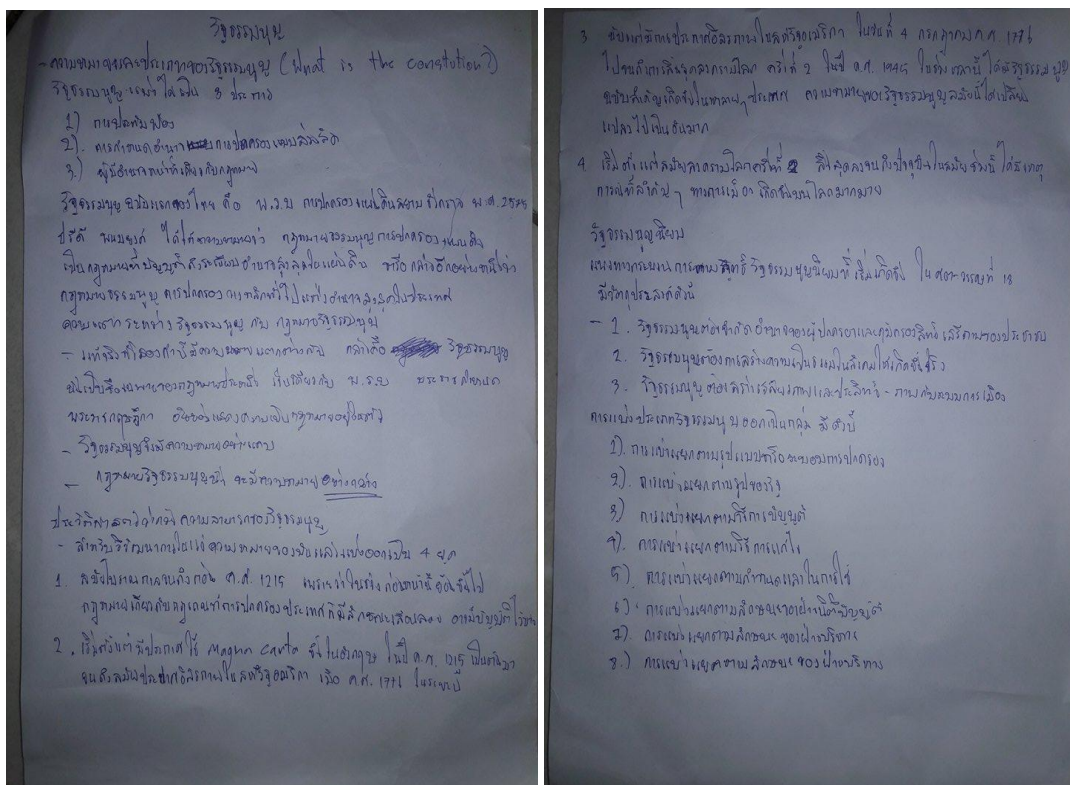 รัฐธรรมนูญ
- ความหมายและประเภทของรัฐธรรมนูญ (What is the constution?)
รัฐธรรมนูญ แบ่งได้เป็น 3 ประการ
1)
2). การกำหนดอำนาจ การปกครองแบบ
3.) ผู้มีอำนาจหน้าที่เกี่ยวกับกฎหมาย
รัฐธรรมนูญฉบับแรกของไทย คือ พ.ร.บ การปกครองแผ่นดินสยาม ชั่วคราว พ.ศ. 2475
ปรีดี พนมยงค์ ได้ให้ความหมายว่า กฎหมายธรรมนูญการปกครองแผ่นดิน
เป็นกฎหมายที่บัญญัติถึงระเบียบอำนาจสูงสุดในแผ่นดิน หรือ กล่าวอีกอย่างหนึ่งว่า
กฎหมายธรรมนูญ การปกครอง วางหลักทั่วไปแห่งอำนาจสูงสุดในประเทศ
ความแตกต่างระหว่าง รัฐธรรมนูญ กับ กฎหมายรัฐธรรมนูญ
- แท้จริงทั้งสองคำนี้มีความหมายแตกต่างกัน กล่าวคือ รัฐธรรมนูญ
นั้นเป็นชื่อเฉพาะของกฎหมายประเภทหนึ่ง เช่นเดียวกับ พ.ร.บ พระราชกำหนด
พระราชกฤษฎีกา
- รัฐธรรมนูญจึงมีความหมายอย่างแคบ
- กฎหมายรัฐธรรมนูญนั้น จะมีความหมายอย่างกว้าง
ประวัติศาสตร์ว่าด้วยความหมายของรัฐธรรมนูญ
- สำหรับวิวัฒนาการในแง่ความหมายของมันแล้วแบ่งออกเป็น 4 ยุค
1. สมัยโบราณกาลจนถึงก่อน ค.ศ. 1215 เพราะว่าในช่วงก่อนหน้านี้
กฎหมายเกี่ยวกับกฎเกณฑ์การปกครองประเทศก็มีลักษณะ
2. เริ่มตั้งแต่มีประกาศใช้ Magna Carta ขึ้นในอังกฤษ ในปี ค.ศ. 1215 เป็นต้นมา
จนถึงสมัยประกาศอิสรภาพในสหรัฐอเมริกา เมื่อ ค.ศ. 1776
3. นับแต่มีการประกาศอิสรภาพในสหรัฐอเมริกา ในวันที่ 4 กรกฎาคม ค.ศ 1776
ไปจนถึงการสิ้นสุดสงครามโลก ครั้งที่ 2 ในปี ค.ศ. 1945 ในช่วงเวลานี้ ได้มีรัฐธรรมนูญ
ฉบับสำคัญเกิดขึ้นในหลายๆประเทศ ความหมายของรัฐธรรมนูญสมัยนี้ได้เปลี่ยน
แปลงไปเป็นอันมาก
4. เริ่มตั้งแต่สมัยสงครามโลกครั้งที่ 2 สิ้นสุดลงจนถึงปัจจุบันในสมัยช่วงนี้ ได้มีเหตุ
การณ์ที่สำคัญๆ ทางการเมือง เกิดขึ้นบนโลกมากมาย
รัฐธรรมนูญนิยม
รัฐธรรมนูญนิยมที่เริ่มเกิดขึ้น ในศตวรรษที่ 18
มีวัตถุประสงค์ดังนี้
- 1. รัฐธรรมนูญต้องจำกัด อำนาจของผู้ปกครองและคุ้มครองสิทธิเสรีภาพของประชาชน
2. รัฐธรรมนูญต้องการสร้างความเป็นธรรมในสังคมให้เกิดขึ้นจริง
3. รัฐธรรมนูญ ต้องสร้างเสถียรภาพและประสิทธิ - ภาพกับระบบการเมือง
การแบ่งประเภทรัฐธรรมนูญออกเป็นกลุ่ม มีดังนี้
1). การแบ่งแยกตามรูปแบบหรือระบอบการปกครอง
2). การแบ่งแยกตามรูปของรัฐ
3) การแบ่งแยกตามวิธีการบัญญัติ
4). การแบ่งแยกตามวิธีการแก้ไข
5). การแบ่งแยกตามกำหนดเวลาในการใช้
6) การแบ่งแยกตามลักษณะของฝ่ายนิติบัญญัติ
7). การแบ่งแยกตามลักษณะของฝ่ายบริหาร
8.) การแบ่งแยกตามลักษณะของฝ่าย